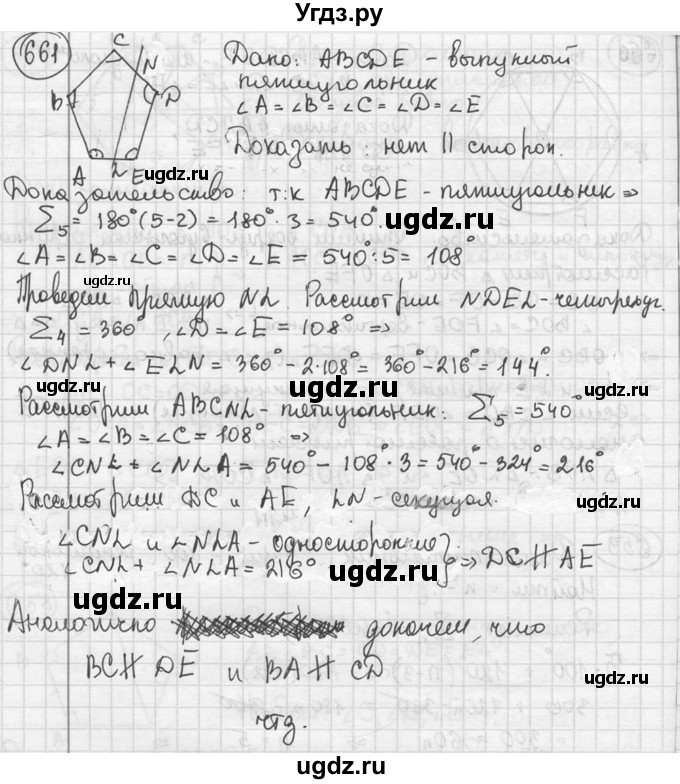 Угдз.ру
661
C
N
B
D
A
L
E
Дано: ABCDE - выпуклый
пятиугольник
∠A = ∠B = ∠C = ∠D = ∠E
Доказать: нет || сторон.
ugdz.ru
Доказательство: т.к ABCDE - пятиугольник ⇒
ugdz.ru
Σ₅ = 180°(5-2) = 180°·3 = 540°.
ugdz.ru
∠A = ∠B = ∠C = ∠D = ∠E = 540°:5 = 108°
ugdz.ru
Проведем прямую NL. Рассмотрим NDEL - четырехуг.
Σ₄ = 360°, ∠D = ∠E = 108° ⇒
∠DNL + ∠ELN = 360° - 2·108° = 360° - 216° = 144°.
ugdz.ru
ugdz.ru
ugdz.ru
Рассмотрим ABCNL - пятиугольник: Σ₅ = 540°
∠A = ∠B = ∠C = 108° ⇒
ugdz.ru
∠CNL + ∠NLA = 540° - 108°·3 = 540° - 324° = 216°
Рассмотрим DC и AE, LN - секущая.
ugdz.ru
ugdz.ru
∠CNL и ∠NLA - односторонние
∠CNL + ∠NLA = 216° } ⇒ DC ∦ AE
ugdz.ru
ugdz.ru
Аналогично докажем, что
ugdz.ru
BC ∦ DE и BA ∦ CD
ugdz.ru
чтд.
ugdz.ru
ugdz.ru